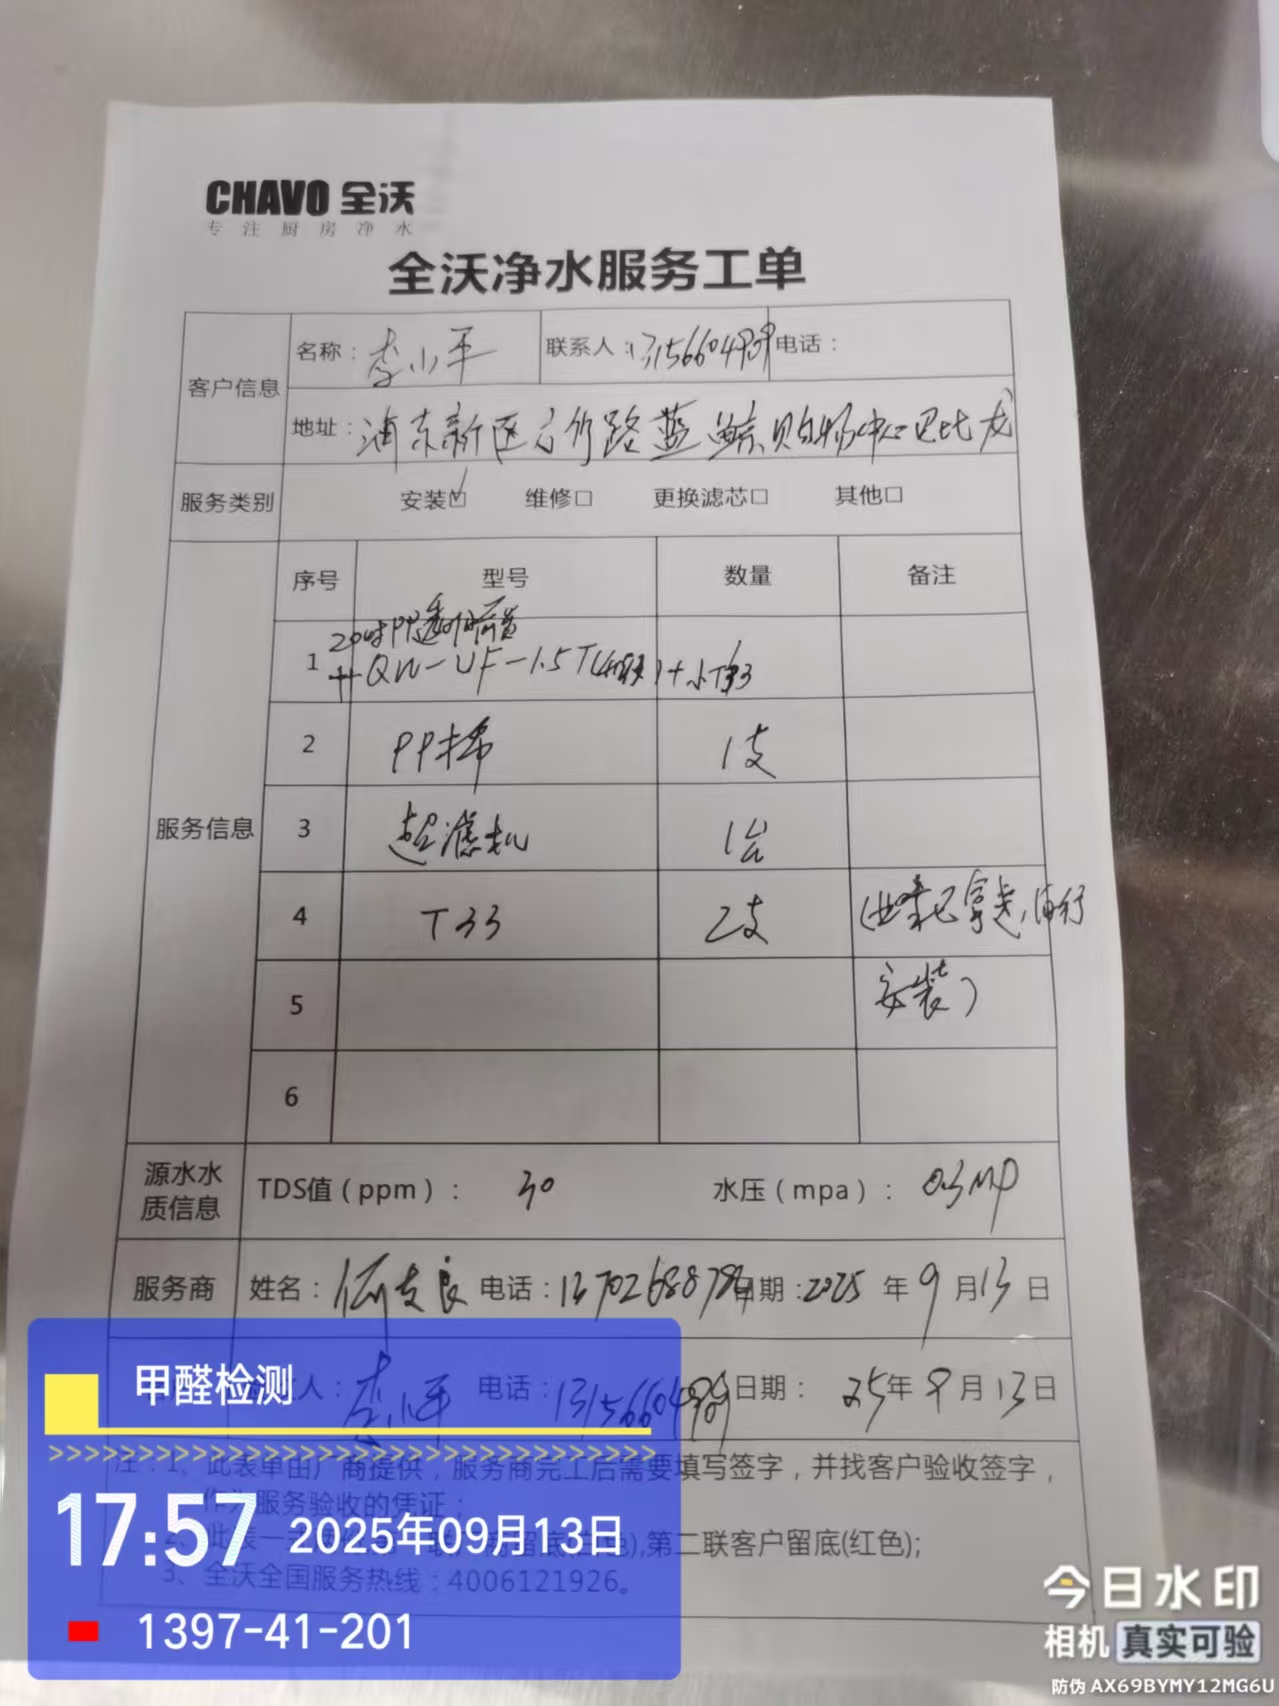 CHAVO 全沃
专注厨房净水
全沃净水服务工单
客户信息 名称：李小平 联系人：13156604909 电话：
地址：浦东新区 路蓝鲸购物中心巴比龙
服务类别 安装☑ 维修□ 更换滤芯□ 其他□
服务信息 序号 型号 数量 备注
20吋PP
1 + QW-UF-1.5T
2 PP棉 1支
3 超滤机 1台
4 T33 2支 (业 已拿走,自行
5 安装)
6
源水水质信息 TDS值（ppm）： 30 水压（mpa）： 0.3MP
服务商 姓名： 支良 电话： 日期：2025年9月13日
人：李小平 电话：13156604909 日期：25年9月13日
注：1、此表单由厂商提供，服务商完工后需要填写签字，并找客户验收签字，
作为服务验收的凭证；
2、此表一式 联 商留底(白色),第二联客户留底(红色);
3、全沃全国服务热线：4006121926。
甲醛检测
>>>>>>>>>>>>>>>>>>>>>>>>>>>>>>>>>>>
17:57 2025年09月13日
1397-41-201
今日水印
相机 真实可验
防伪 AX69BYMY12MG6U